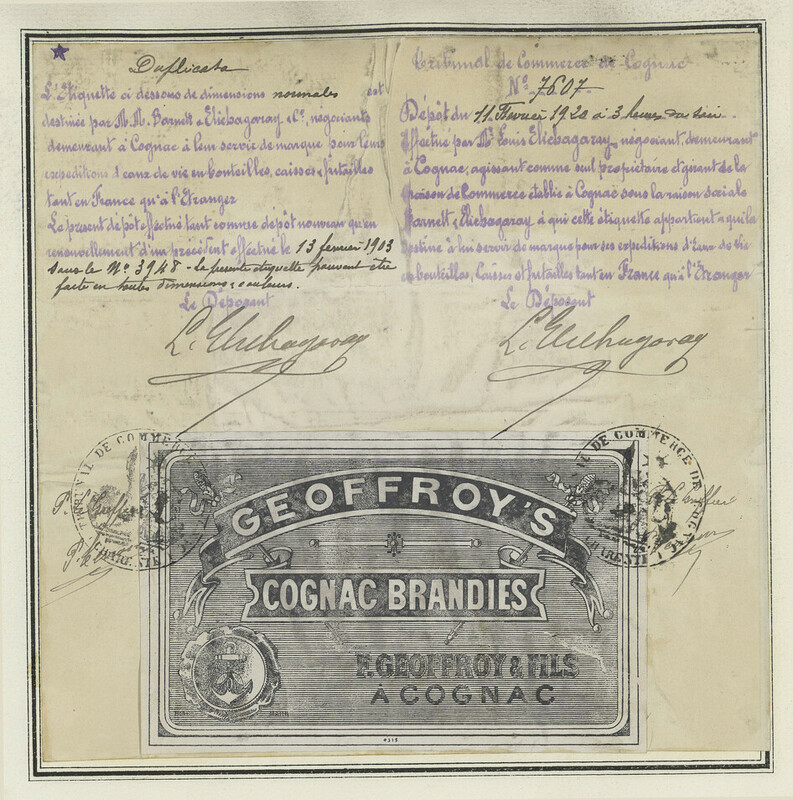 Duplicata
L'Etiquette ci dessous de dimensions normales est
destinée par M.M. Barnett & Elichagaray & Cie, négociants
demeurant à Cognac à leur servir de marque pour leurs
expéditions d'eaux de vie en bouteilles, caisses & futailles
tant en France qu'à l'Etranger
Le présent dépôt effectué tant comme dépôt nouveau qu'en
renouvellement d'un précédent effectué le 13 février 1903
sous le No 3948 - la présente étiquette pouvant être
faite en toutes dimensions & couleurs.
Le Déposant
L. Elichagaray
Tribunal de Commerce de Cognac
No 7607
Dépôt du 11 Février 1920 à 3 heures du soir
Effectué par Mr Louis Elichagaray, négociant, demeurant
à Cognac, agissant comme seul propriétaire et gérant de la
Maison de Commerce établie à Cognac sous la raison sociale
Barnett & Elichagaray à qui cette étiquette appartient & qui la
destine à lui servir de marque pour ses expéditions d'Eaux de Vie
en bouteilles, Caisses et futailles tant en France qu'à l'Etranger
Le Déposant
L. Elichagaray
TRIBUNAL DE COMMERCE
CHARENTE
P. le Greffier
DE COMMERCE DE COGNAC
CHARENTE
GEOFFROY'S
COGNAC BRANDIES
F. GEOFFROY & FILS
À COGNAC
4315